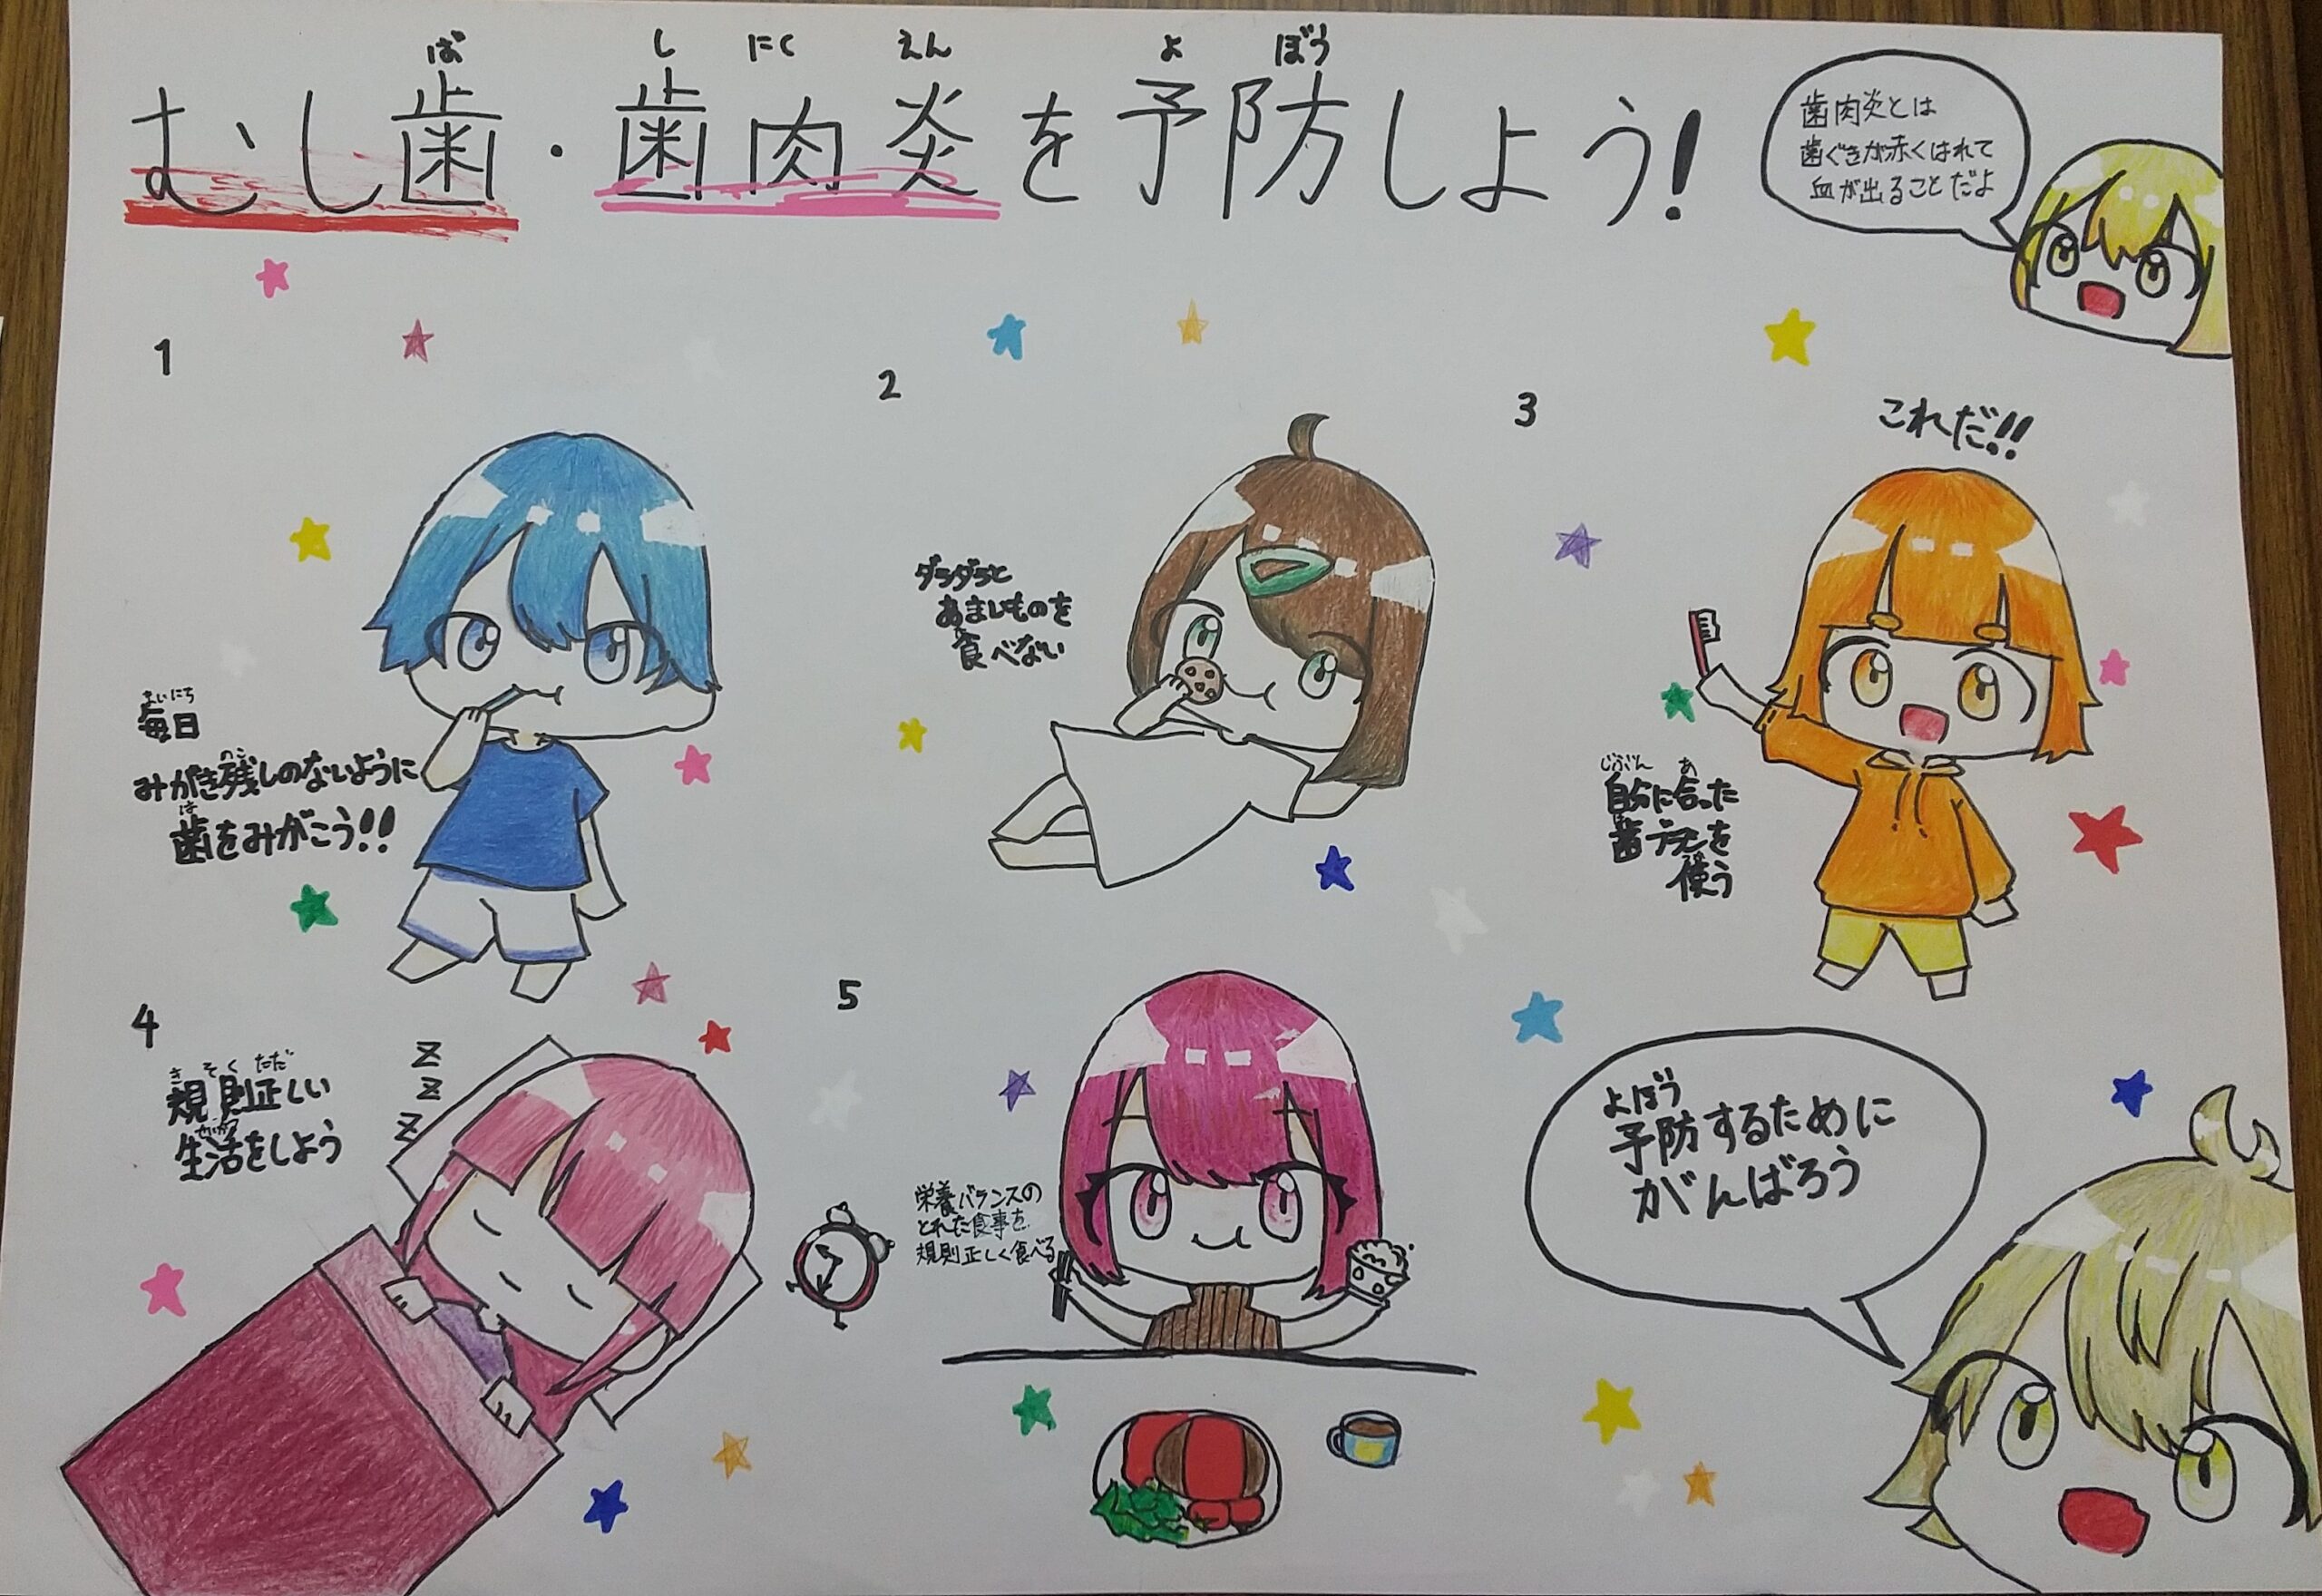 ば し にく えん よ ぼう
むし歯・歯肉炎を予防しよう!
歯肉炎とは
歯ぐきが赤くはれて
血が出ることだよ
1
まいにち
毎日
のこ
みがき残しのないように
は
歯をみがこう!!
2
ダラダラと
あまいものを
食べない
3
これだ!!
じぶん あ
自分に合った
歯ブラシを
使う
4
き そく ただ
規則正しい
せいかつ
生活をしよう
z
z
z
5
栄養バランスの
とれた食事を
規則正しく食べる
よぼう
予防するために
がんばろう